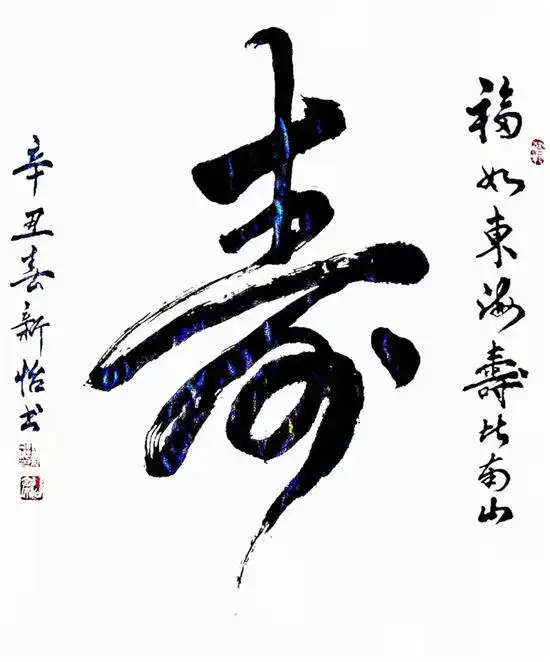 福如東海壽比南山
寿
辛丑春新怡书